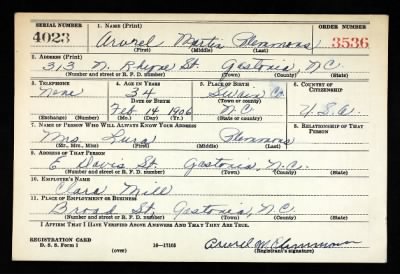 SERIAL NUMBER 1. NAME (Print) ORDER NUMBER
4023 Arvrel Martin Plemmons 3536
(First) (Middle) (Last)
2. ADDRESS (Print)
313 N. Rhyne St. Gastonia, N.C.
(Number and street or R. F. D. number) (Town) (County) (State)
3. TELEPHONE 4. AGE IN YEARS 5. PLACE OF BIRTH 6. COUNTRY OF CITIZENSHIP
None 34 Swain Co.
DATE OF BIRTH (Town or county)
Feb 16 1906 N.C. U.S.A.
(Exchange) (Number) (Mo.) (Day) (Yr.) (State or country)
7. NAME OF PERSON WHO WILL ALWAYS KNOW YOUR ADDRESS 8. RELATIONSHIP OF THAT PERSON
Mrs Lura Plemmons
(Mr., Mrs., Miss) (First) (Middle) (Last)
9. ADDRESS OF THAT PERSON
E Davis St. Gastonia, N.C.
(Number and street or R. F. D. number) (Town) (County) (State)
10. EMPLOYER'S NAME
Clara Mill
11. PLACE OF EMPLOYMENT OR BUSINESS
Broad St. Gastonia, N.C.
(Number and street or R. F. D. number) (Town) (County) (State)
I AFFIRM THAT I HAVE VERIFIED ABOVE ANSWERS AND THAT THEY ARE TRUE.
REGISTRATION CARD
D. S. S. Form 1 16—17105
(over) (Registrant's signature)